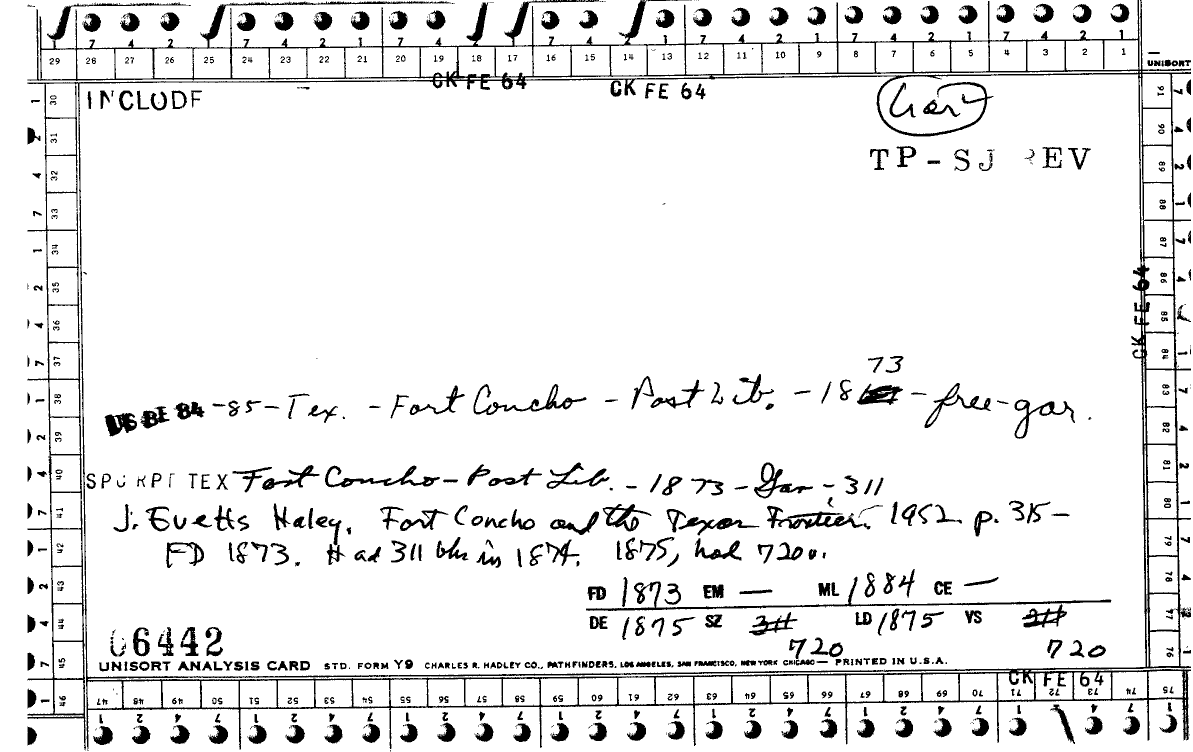 7 4 2 7 4 2 1 7 4 7 2 1 7 4 2 1 7 4 2 1 7 4 2 1
29 28 27 26 25 24 23 22 21 20 19 18 17 16 15 14 13 12 11 10 9 8 7 6 5 4 3 2 1
UNISORT
CK FE 64 CK FE 64
INCLUDE
TP-SJ REV
CK FE 64
73
US BE 84 -85-Tex. - Fort Concho - Post Lib. - 18 - free-gar.
SPC RPT TEX Fort Concho - Post Lib. - 1873 - Gar - 311
J. Evetts Haley. Fort Concho and the Texas Frontier. 1952. p. 315-
FD 1873. Had 311 bks in 1874. 1875, had 720v.
FD 1873 EM — ML 1884 CE —
DE 1875 SZ 311 LD 1875 VS 311
720 720
06442
UNISORT ANALYSIS CARD STD. FORM Y9 CHARLES R. HADLEY CO., PATHFINDERS, LOS ANGELES, SAN FRANCISCO, NEW YORK CHICAGO — PRINTED IN U.S.A.
CK FE 64
47 48 49 50 51 52 53 54 55 56 57 58 59 60 61 62 63 64 65 66 67 68 69 70 71 72 73 74 75
30 31 32 33 34 35 36 37 38 39 40 41 42 43 44 45 46
91 90 89 88 87 86 85 84 83 82 81 80 79 78 77 76